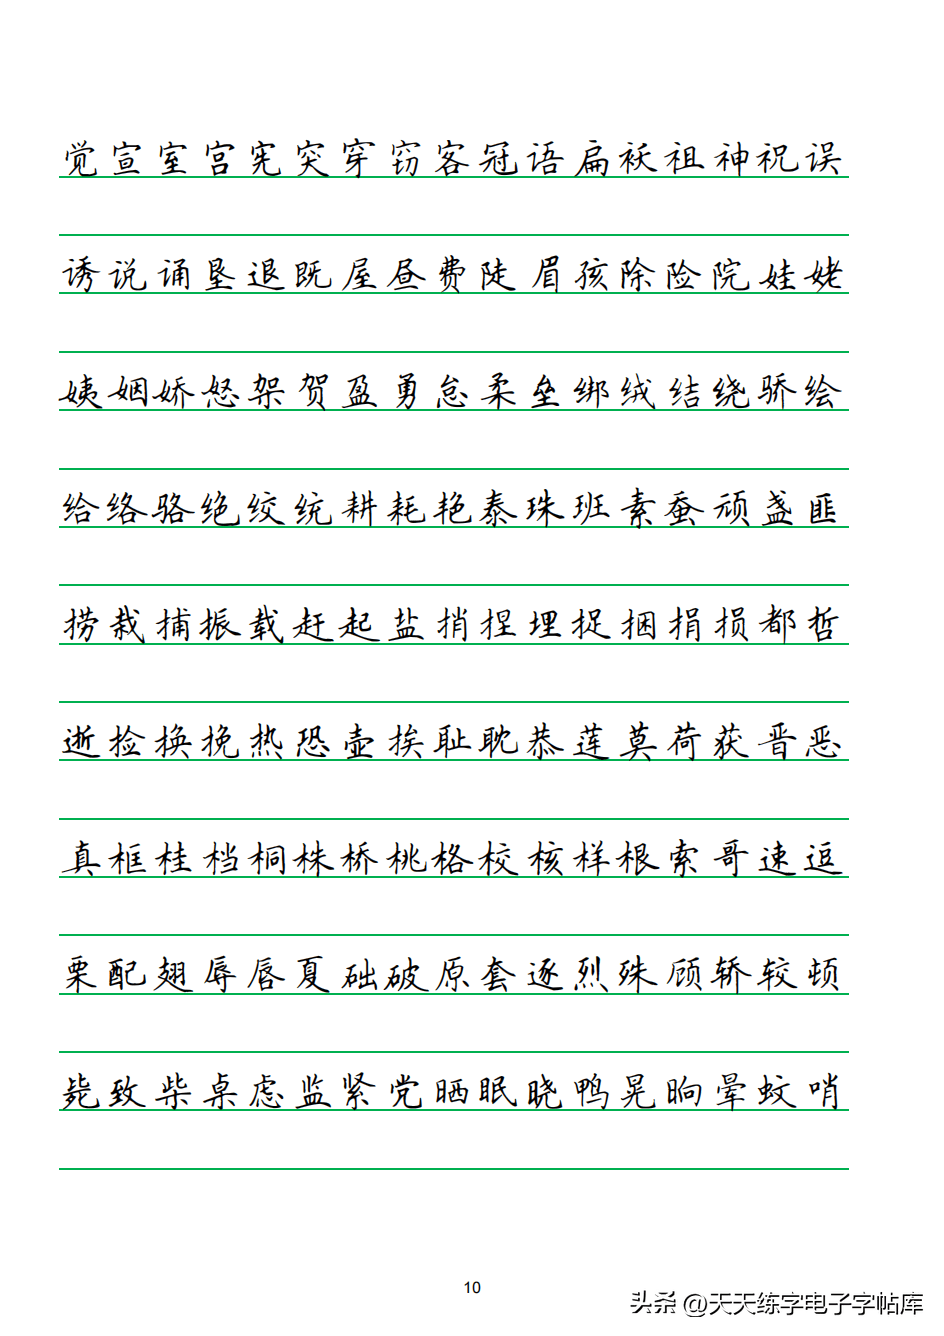 觉宣室宫宪突穿窃客冠语扁袄祖神祝误
诱说诵垦退既屋昼费陡眉孩除险院娃姥
姨姻娇怒架贺盈勇怠柔垒绑绒结绕骄绘
给络骆绝绞统耕耗艳泰珠班素蚕顽盏匪
捞栽捕振载赶起盐捎捏埋捉捆捐损都哲
逝捡换挽热恐壶挨耻耽恭莲莫荷获晋恶
真框桂档桐株桥桃格校核样根索哥速逗
栗配翅辱唇夏础破原套逐烈殊顾轿较顿
毙致柴桌虑监紧党晒眠晓鸭晃晌晕蚊哨
10
头条 @天天练字电子字帖库